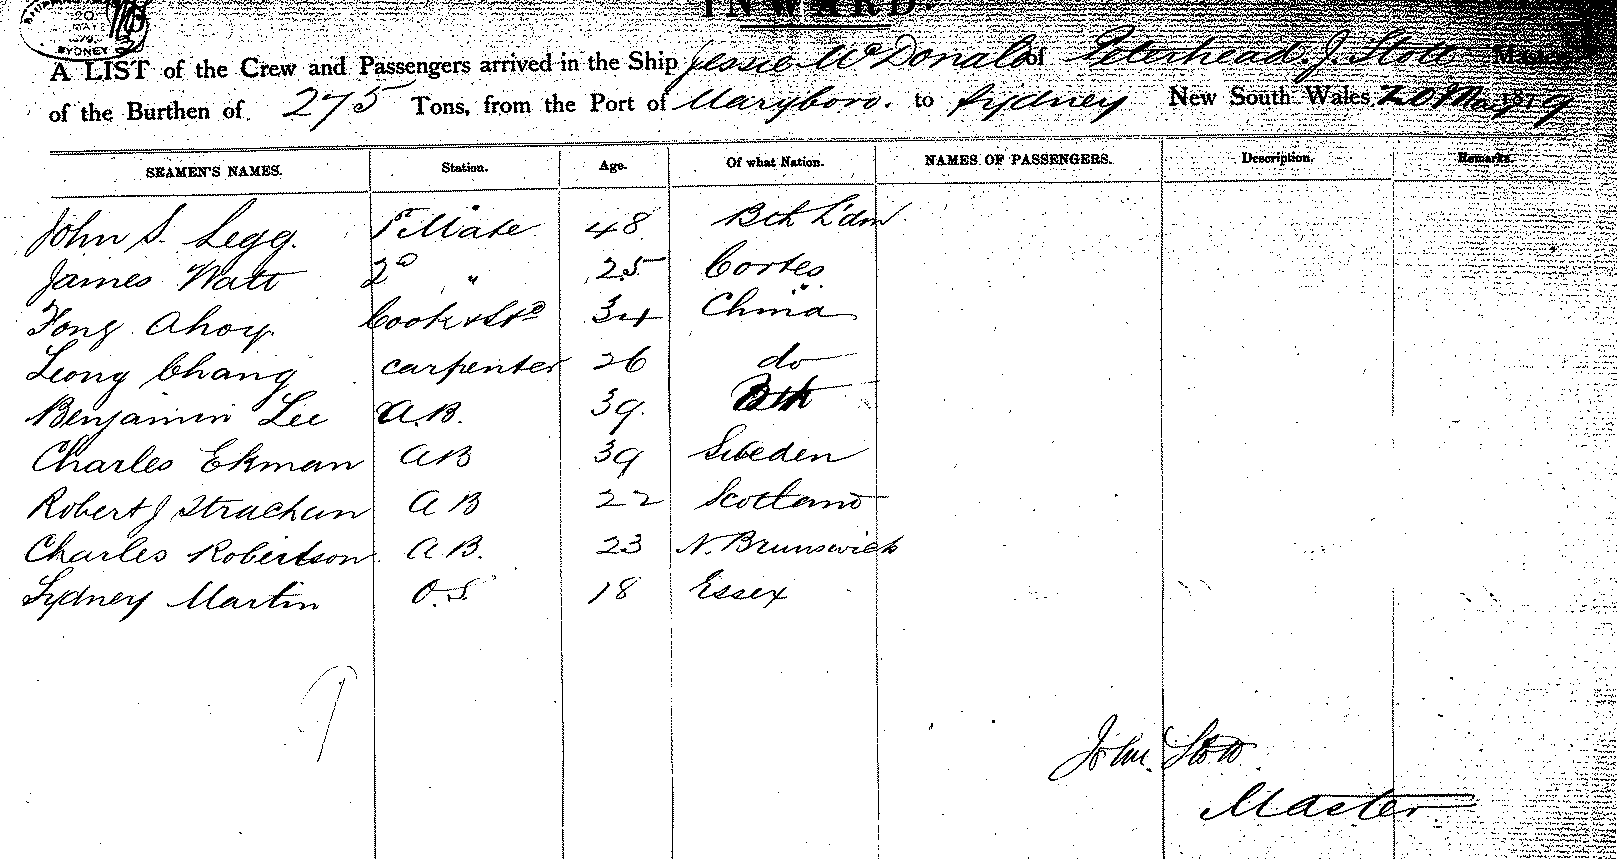 20
MAY
79
SYDNEY
INWARD.
A LIST of the Crew and Passengers arrived in the Ship Jessie McDonald of Peterhead. J. Stott Master
of the Burthen of 275 Tons, from the Port of Maryboro. to Sydney New South Wales 20 May 1879
SEAMEN'S NAMES. Station. Age. Of what Nation. NAMES OF PASSENGERS. Description. Remarks.
John S. Legg. 1st Mate 48 Bth
James Watt 2d " 25
Fong Ahoy Cook & Std 34 China
Leong Chang carpenter 26 do
Benjamin Lee A.B. 39. Bth
Charles Ekman AB 39 Sweden
Robert J Strachan AB 22 Scotland
Charles Robertson A.B. 23 N. Brunswick
Sydney Martin O.S. 18 Essex
John Stott
Master